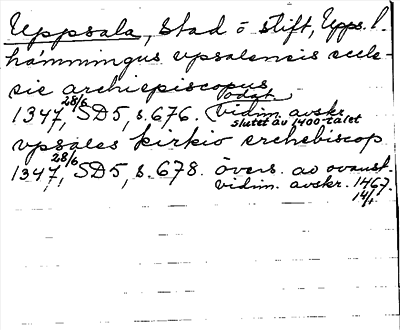 Uppsala, Stad o stift, Upps. l.
hæmmingus vpsalensis eccle-
sie archiepiscopus
1347 28/6, SD5, s. 676. (odat. vidim. avskr.
slutet av 1400-talet
vpsales kirkio erchebiscop
1347 28/6, SD5, s. 678. övers. av ovanst.
vidim. avskr. 1467.
14/4